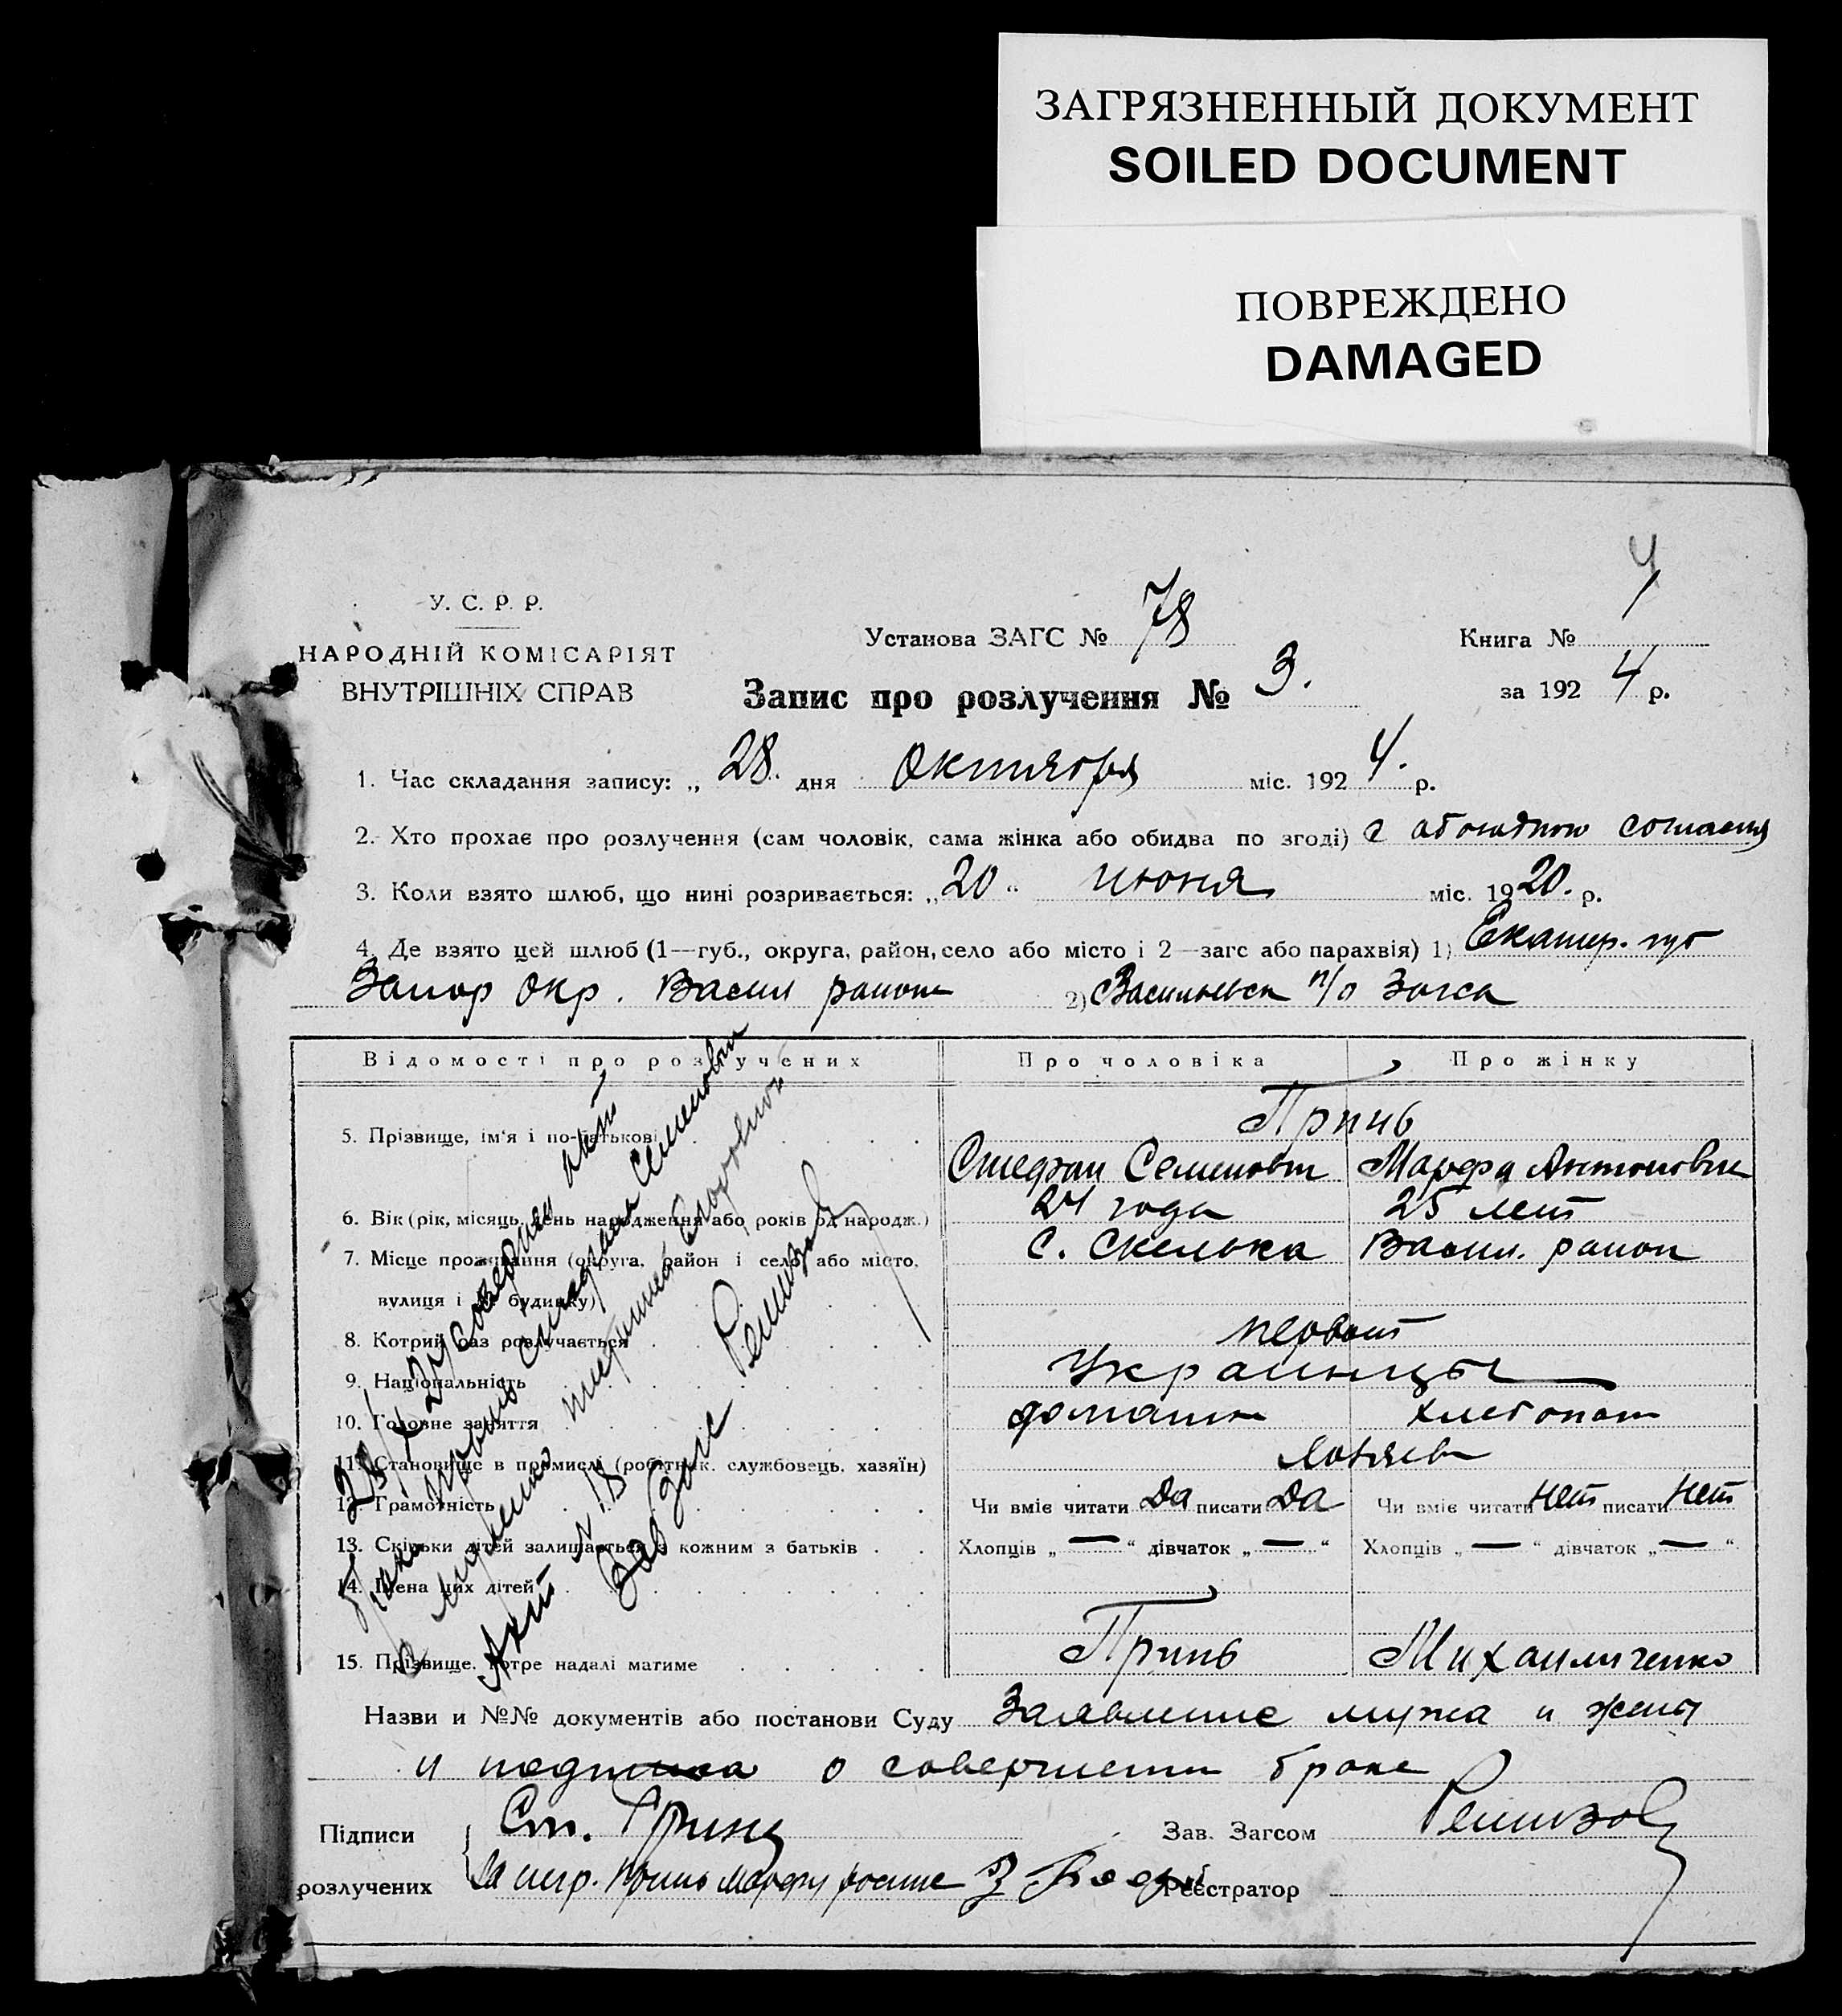 ЗАГРЯЗНЕННЫЙ ДОКУМЕНТ
SOILED DOCUMENT
ПОВРЕЖДЕНО
DAMAGED
4
У. С. Р. Р.
НАРОДНІЙ КОМІСАРІЯТ
ВНУТРІШНІХ СПРАВ
Установа ЗАГС № 78
Книга № 1
Запис про розлучення № 3.
за 192 4 р.
1. Час складання запису: „ 28. дня Октября міс. 192 4. р.
2. Хто прохає про розлучення (сам чоловік, сама жінка або обидва по згоді) с
3. Коли взято шлюб, що нині розривається: „20“ июня міс. 1920. р.
4. Де взято цей шлюб (1—губ., округа, район, село або місто і 2—загс або парахвія) 1) Екатер. губ
Запор Окр. Васил района 2) Васильевск п/о Загса
Відомості про розлучених Про чоловіка Про жінку
5. Прізвище, ім'я і по-батькові Принь
Стефан Семенович Марфа Антоновна
6. Вік (рік, місяць, день народження або років од народж.) 24 года 25 лет
7. Місце проживання (округа, район і село або місто, С. Скелька Васил. район
вулиця і № будинку)
8. Котрий раз розлучається первый
9. Національність Украинцы
10. Головне заняття домашн хлебопаш
11. Становище в промислі (робітник, службовець, хазяїн) хозяева
12. Грамотність Чи вміє читати Да писати Да Чи вміє читати Нет писати Нет
13. Скільки дітей залишається з кожним з батьків Хлопців „ — “ дівчаток „ — “ Хлопців „ — “ дівчаток „ — “
14. Імена цих дітей
15. Прізвище, котре надалі матиме Принь Михайличенко
Назви и №№ документів або постанови Суду Заявление мужа и жены
и подписка о совершении брака
Підписи
розлучених
Ст. Принь
За негр. Принь Марфу
Зав. Загсом Ремизов
Реєстратор
28/X 24 совершен акт
брака Принь Стефана Семеновича
с
Акт № 18
Зав Загс Ремизов